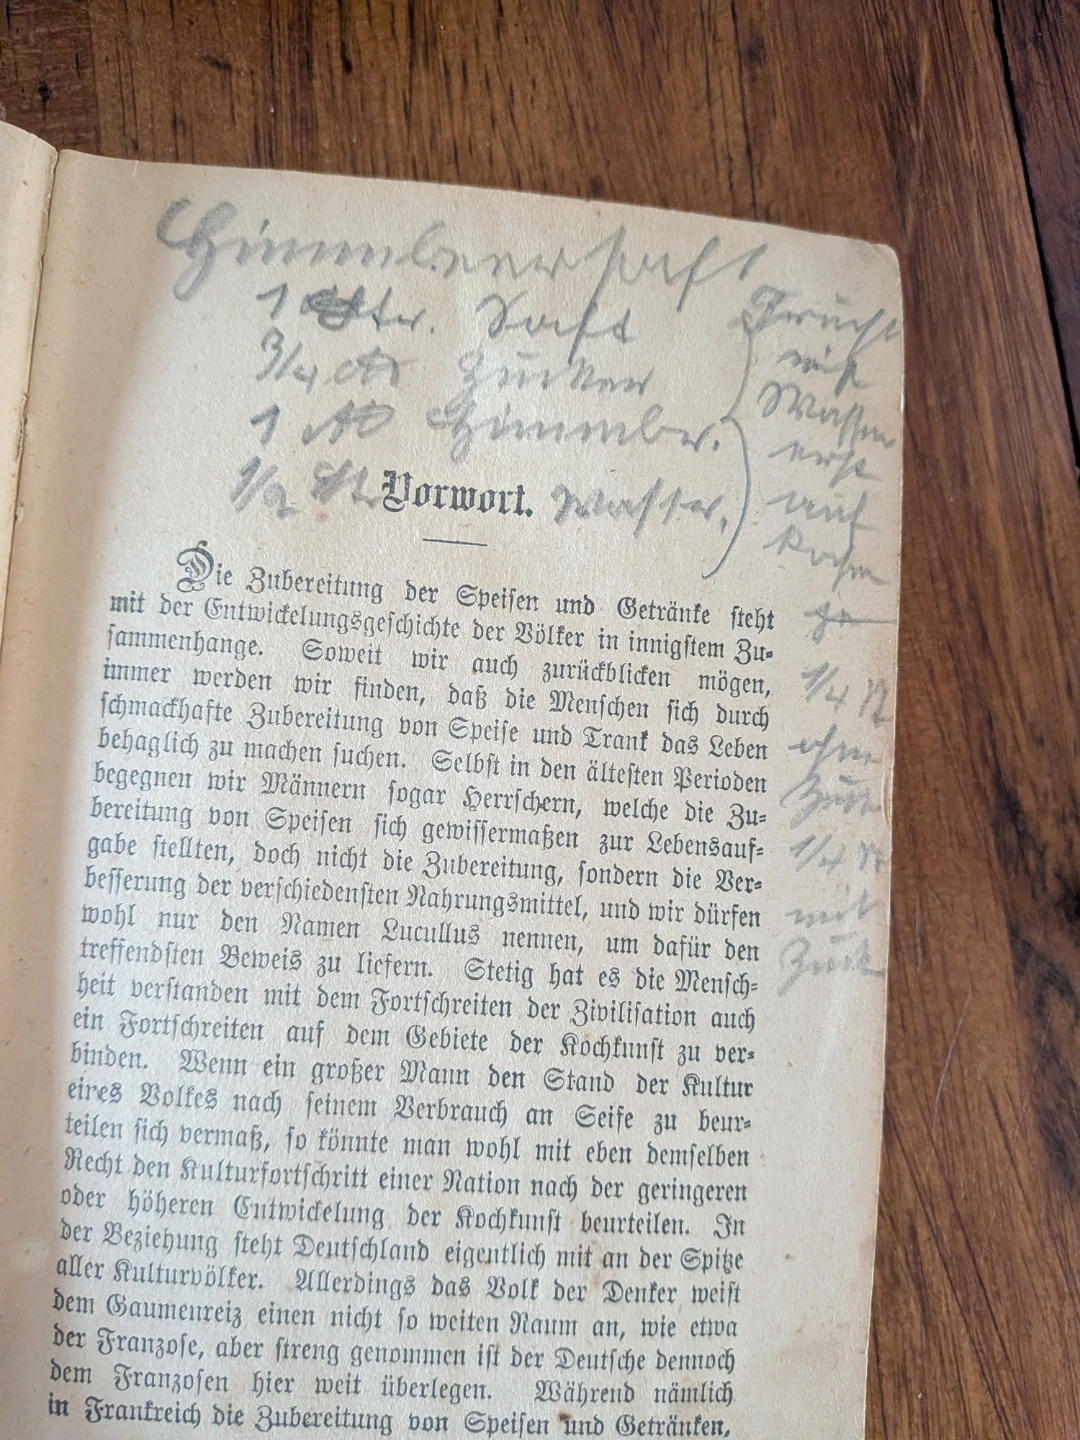 Himmbeersaft
1 Ltr. Saft
3/4 ℔ Zucker
1 ℔ Himmbr.
1/2 Ltr Wasser.
Frucht
mit
Wasser
erst
auf
kochen
je
1/4 St
ohne
Zuck
1/4 St
mit
Zuck
Vorwort.
Die Zubereitung der Speisen und Getränke steht
mit der Entwickelungsgeschichte der Völker in innigstem Zu-
sammenhange. Soweit wir auch zurückblicken mögen,
immer werden wir finden, daß die Menschen sich durch
schmackhafte Zubereitung von Speise und Trank das Leben
behaglich zu machen suchen. Selbst in den ältesten Perioden
begegnen wir Männern sogar Herrschern, welche die Zu-
bereitung von Speisen sich gewissermaßen zur Lebensauf-
gabe stellten, doch nicht die Zubereitung, sondern die Ver-
besserung der verschiedensten Nahrungsmittel, und wir dürfen
wohl nur den Namen Lucullus nennen, um dafür den
treffendsten Beweis zu liefern. Stetig hat es die Mensch-
heit verstanden mit dem Fortschreiten der Zivilisation auch
ein Fortschreiten auf dem Gebiete der Kochkunst zu ver-
binden. Wenn ein großer Mann den Stand der Kultur
eines Volkes nach seinem Verbrauch an Seife zu beur-
teilen sich vermaß, so könnte man wohl mit eben demselben
Recht den Kulturfortschritt einer Nation nach der geringeren
oder höheren Entwickelung der Kochkunst beurteilen. In
der Beziehung steht Deutschland eigentlich mit an der Spitze
aller Kulturvölker. Allerdings das Volk der Denker weist
dem Gaumenreiz einen nicht so weiten Raum an, wie etwa
der Franzose, aber streng genommen ist der Deutsche dennoch
dem Franzosen hier weit überlegen. Während nämlich
in Frankreich die Zubereitung von Speisen und Getränken,